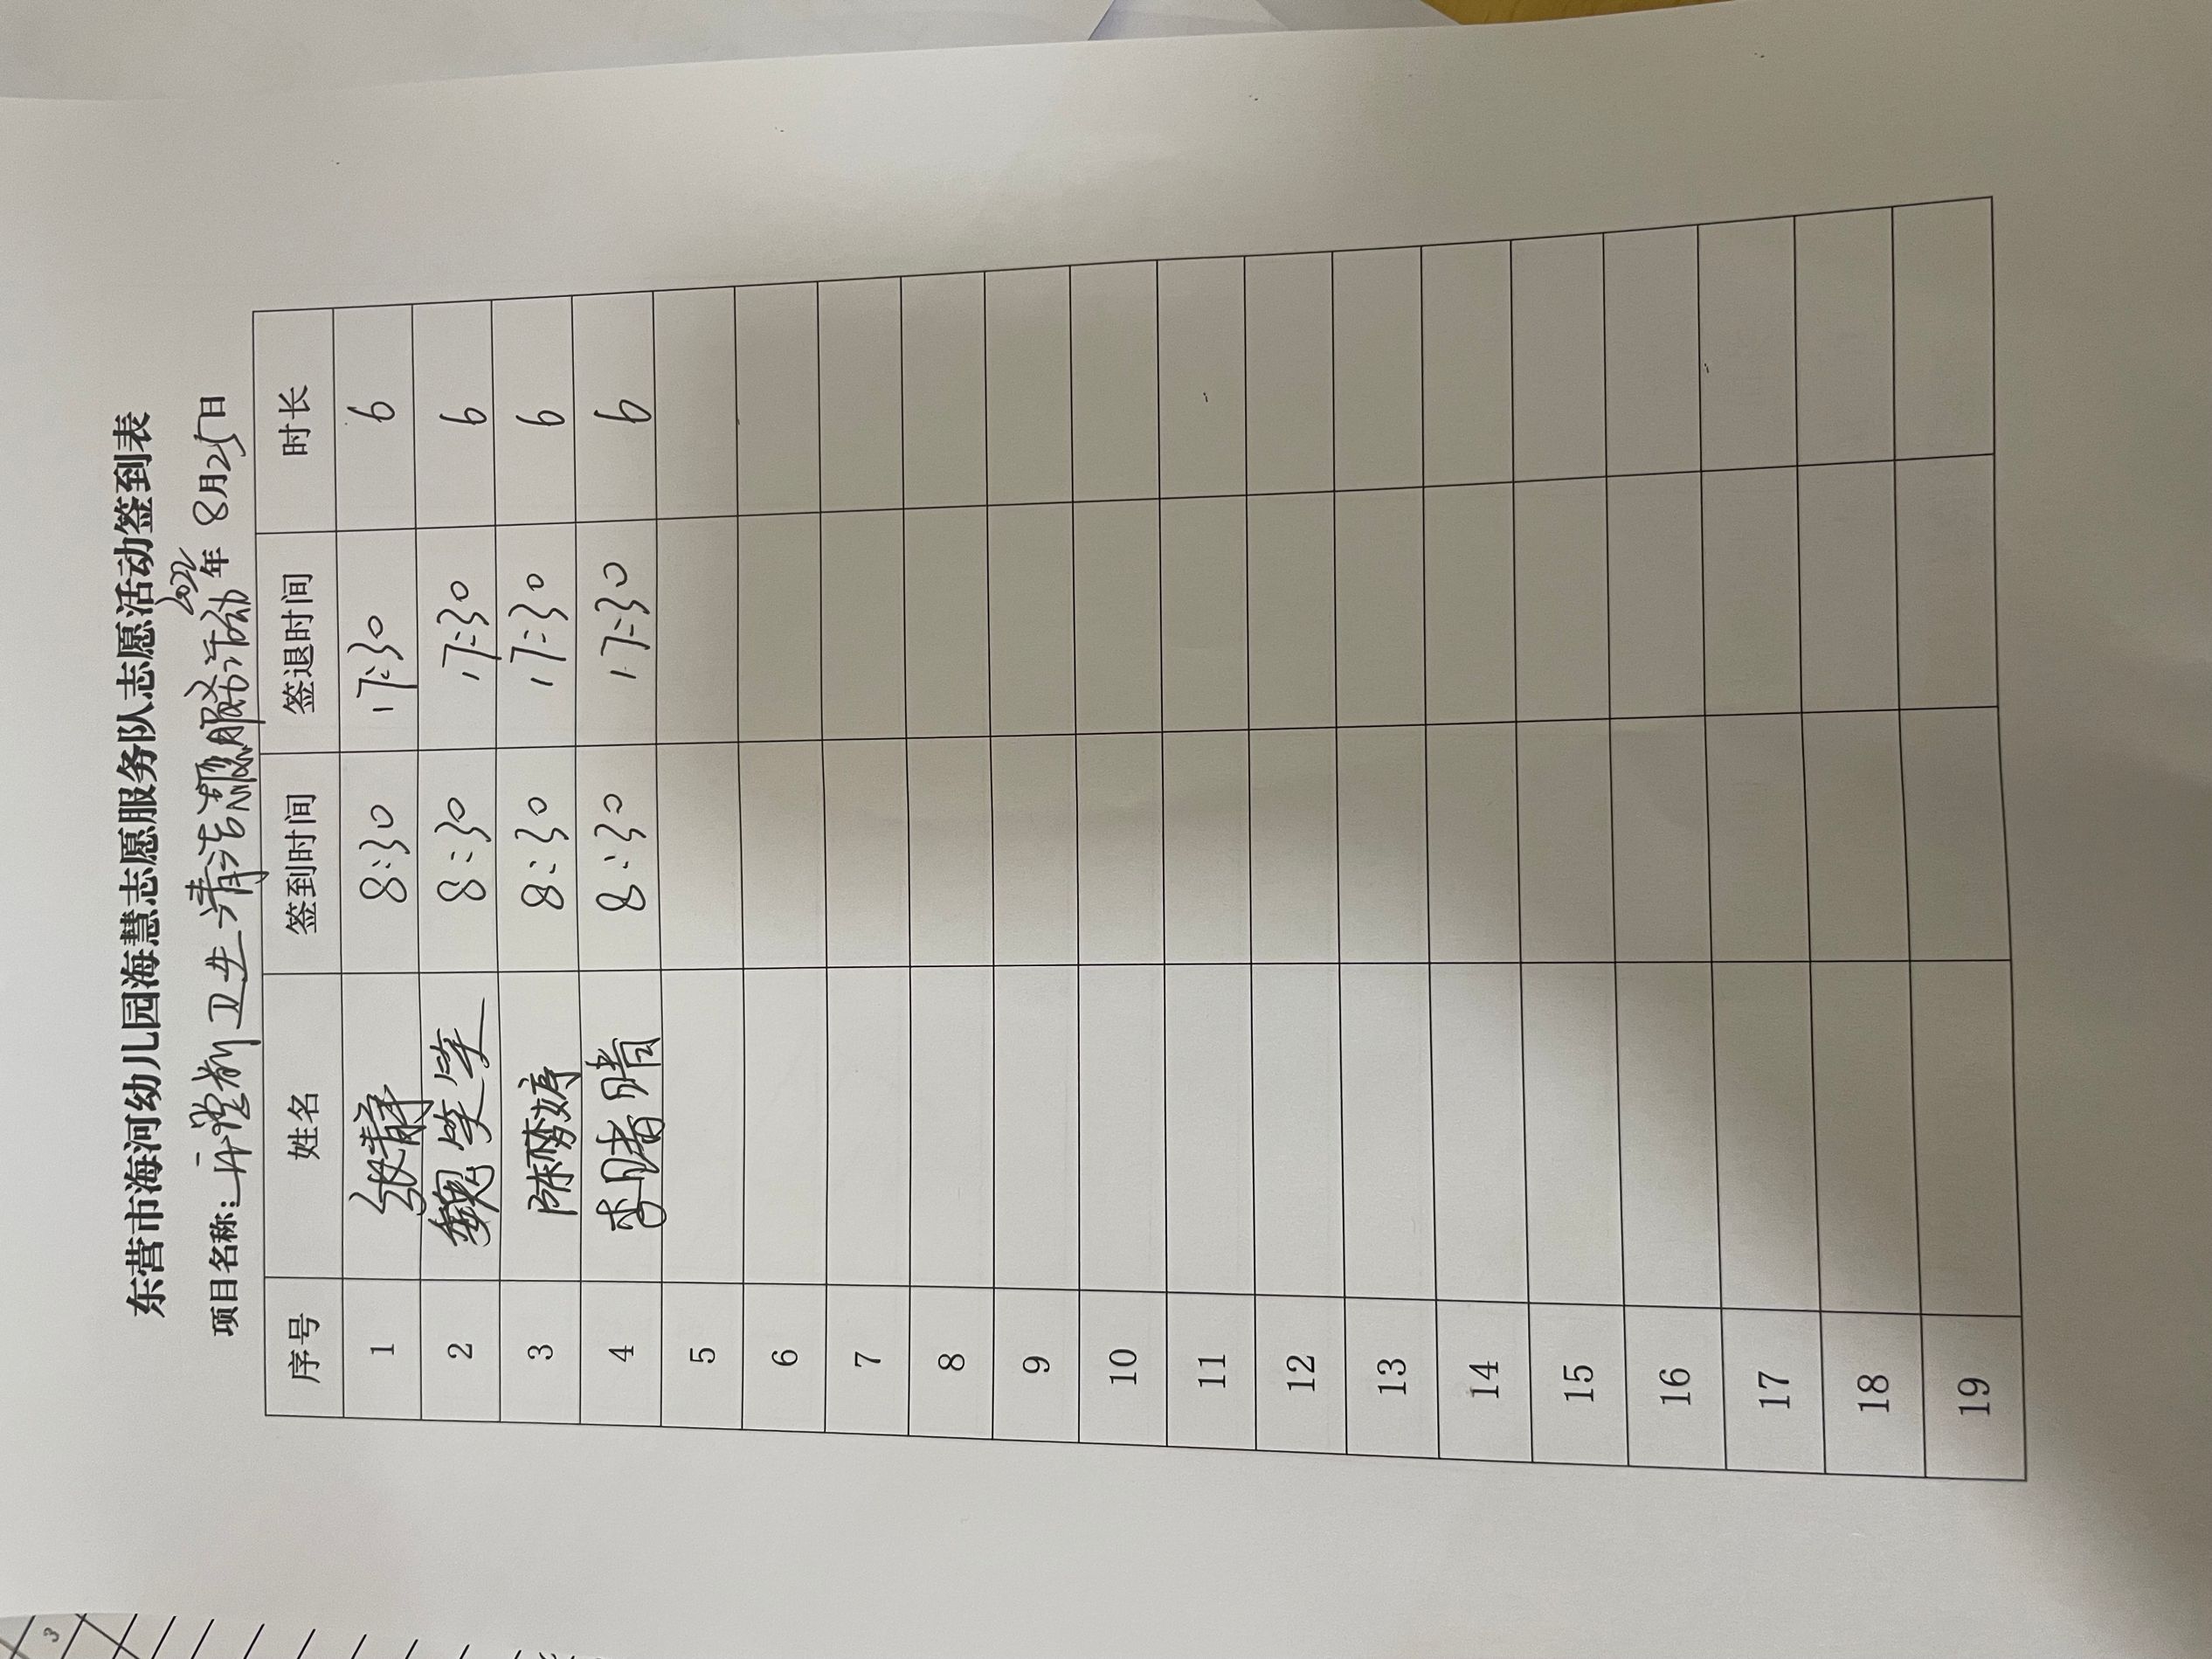 东营市海河幼儿园海慧志愿服务队志愿活动签到表
项目名称：开学前卫生清洁志愿服务活动 2022年 8月25日
序号 姓名 签到时间 签退时间 时长
1 张静 8:30 17:30 6
2 魏笑笑 8:30 17:30 6
3 陈婷 8:30 17:30 6
4 李睹睹 8:30 17:30 6
5
6
7
8
9
10
11
12
13
14
15
16
17
18
19
3